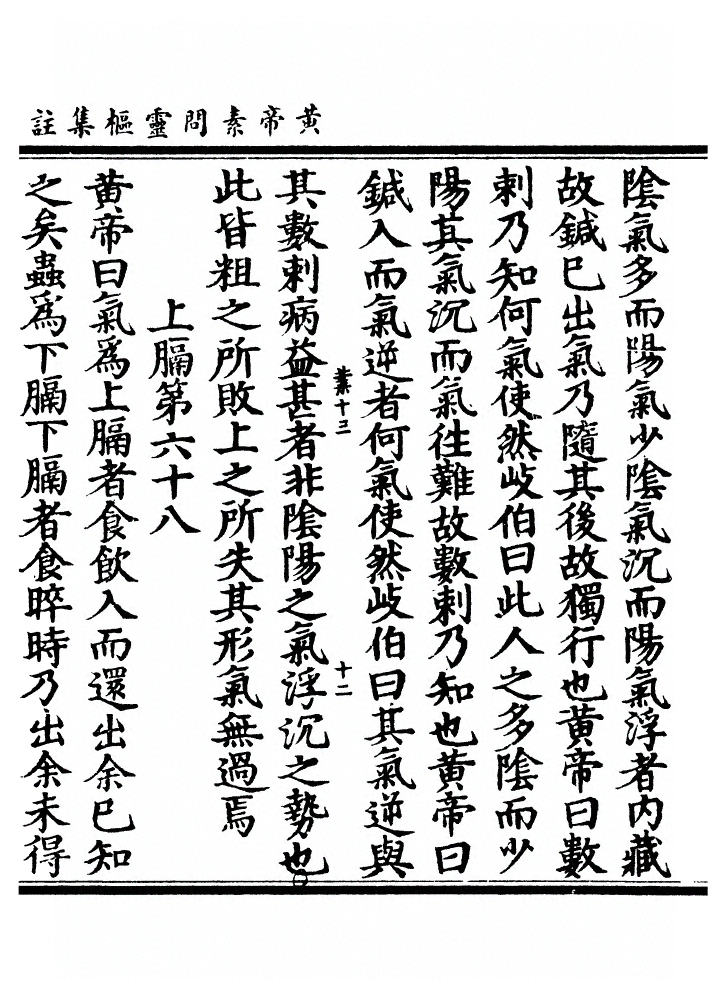 黃帝素問靈樞集註
陰氣多而陽氣少陰氣沉而陽氣浮者內藏
故鍼已出氣乃隨其後故獨行也黃帝曰數
刺乃知何氣使然岐伯曰此人之多陰而少
陽其氣沉而氣徃難故數刺乃知也黃帝曰
鍼入而氣逆者何氣使然岐伯曰其氣逆與
業十三
十二
其數刺病益甚者非陰陽之氣浮沉之勢也○
此皆粗之所敗上之所失其形氣無過焉
上膈第六十八
黃帝曰氣為上膈者食飲入而還出余已知
之矣蟲為下膈下膈者食晬時乃出余未得